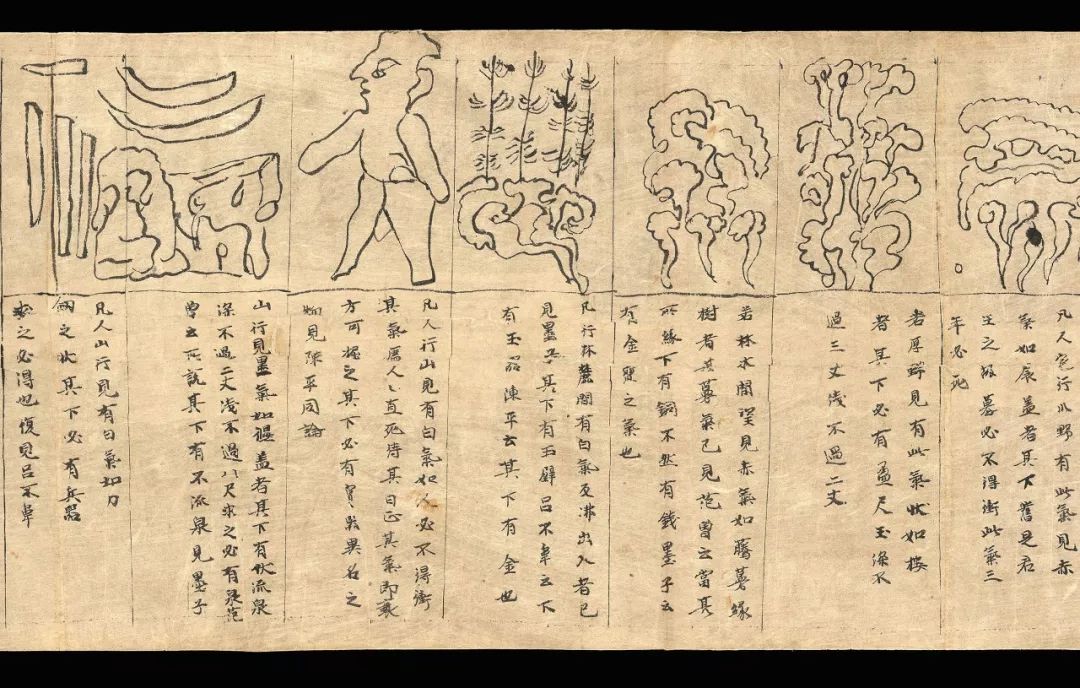 凡人行川野有此氣見赤
氣如蓋者其下舊是君
王之墓必不得衝此氣三
年必死
若厚鮮見有此氣狀如樓
者其下必有盈尺玉深不
過三丈淺不過二丈
若林水間望見赤氣如騰蔓緣
樹者其蔓氣已見范曾云當其
所緣下有銅不然有錢墨子云
有金寶之氣也
凡行林麓間有白氣及沸出入者已
見墨子其下有玉壁呂不韋云下
有玉器陳平云其下有金也
凡人行山見有白氣如人必不得衝
其氣屬人〻直死待其日正其氣即衰
方可掘之其下必有寶異名之
物見陳平同論
山行見墨氣如偃蓋者其下有伏流泉
深不過二丈淺不過八尺求之必有泉范
曾云所說其下有不流泉見墨子
凡人山行見有白氣如刀
劍之狀其下必有兵器
求之必得也復見呂不韋